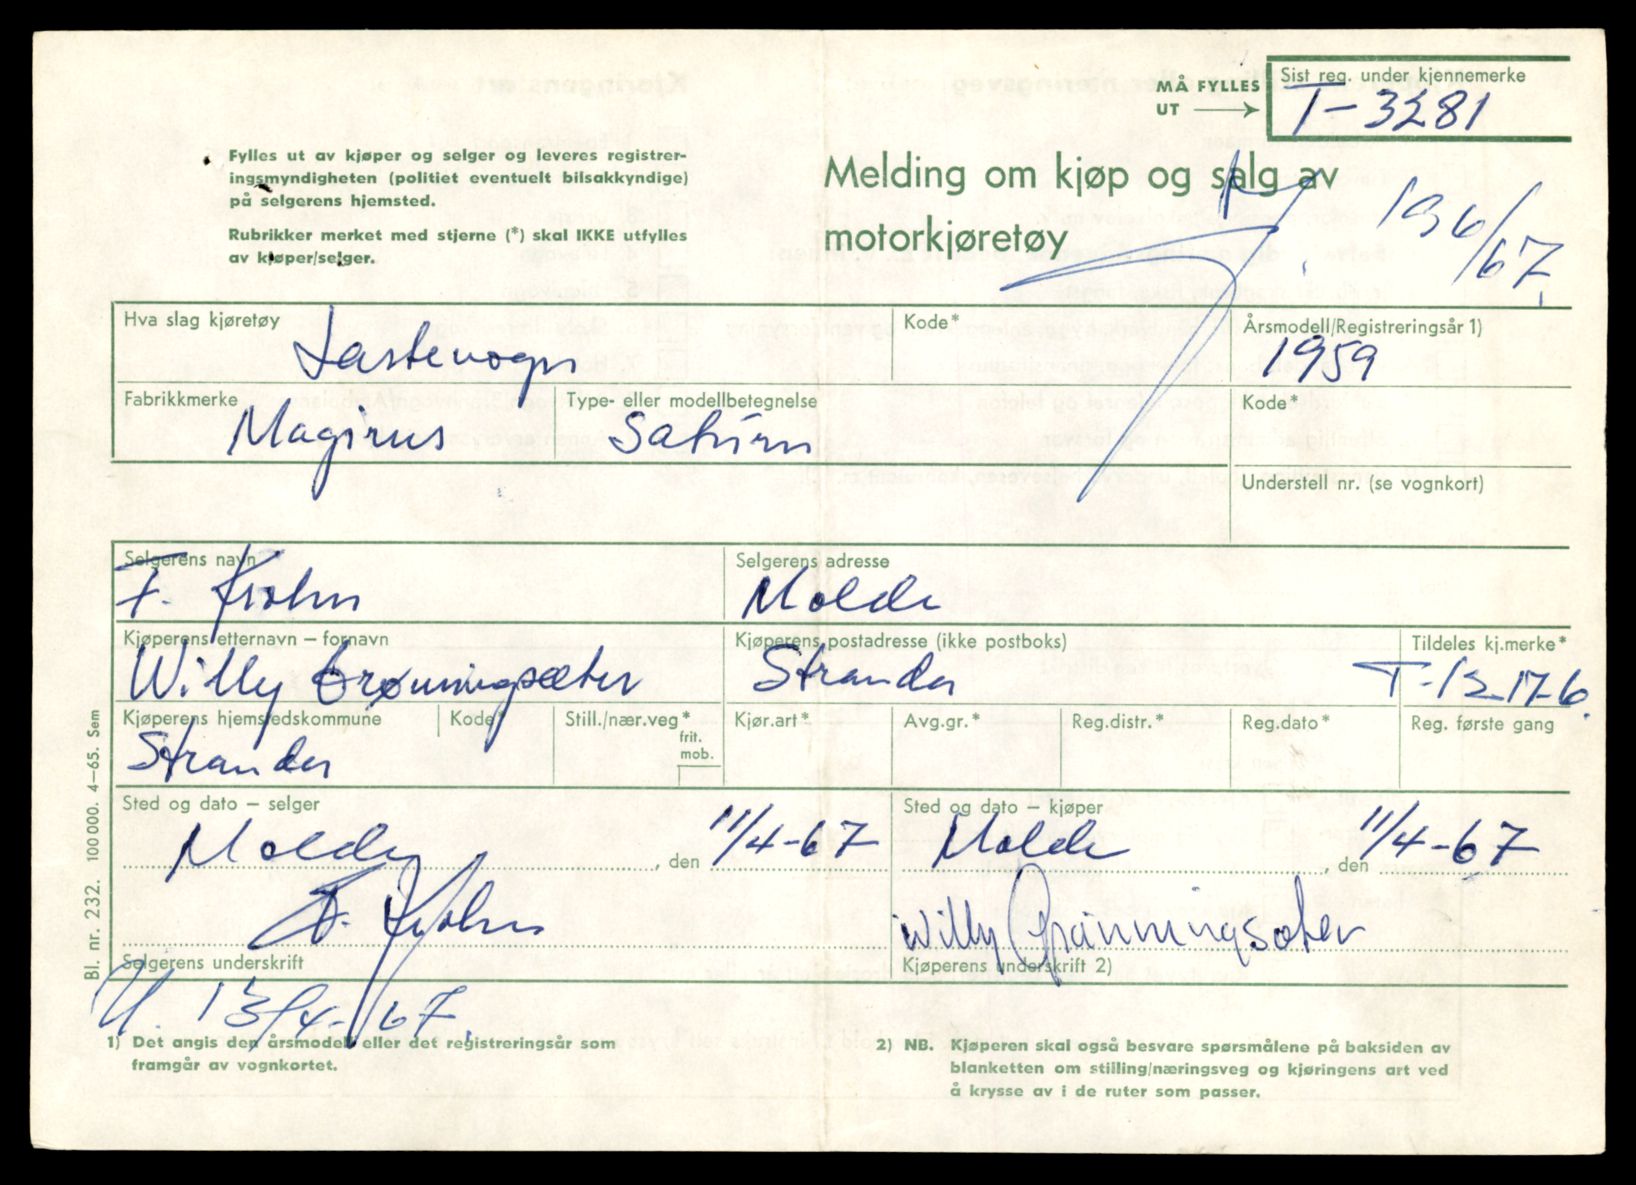 MÅ FYLLES
UT →
Sist reg. under kjennemerke
T-3281
Fylles ut av kjøper og selger og leveres registrer-
ingsmyndigheten (politiet eventuelt bilsakkyndige)
på selgerens hjemsted.
Rubrikker merket med stjerne (*) skal IKKE utfylles
av kjøper/selger.
Melding om kjøp og salg av
motorkjøretøy
196/67.
Hva slag kjøretøy
Lastevogn
Kode*
Årsmodell/Registreringsår 1)
1959
Fabrikkmerke
Magirus
Type- eller modellbetegnelse
Saturn
Kode*
Understell nr. (se vognkort)
Selgerens navn
F. Krohn
Selgerens adresse
Molde
Kjøperens etternavn – fornavn
Willy Grønningsæter
Kjøperens postadresse (ikke postboks)
Stranda
Tildeles kj.merke*
T-13176.
Kjøperens hjemstedskommune
Stranda
Kode*
Still./nær.veg*
frit.
mob.
Kjør.art*
Avg.gr.*
Reg.distr.*
Reg.dato*
Reg. første gang
Sted og dato – selger
Molde, den 11/4-67
Sted og dato – kjøper
Molde, den 11/4-67
F. Krohn
Selgerens underskrift
Willy Grønningsæter
Kjøperens underskrift 2)
13/4-67.
1) Det angis den årsmodell eller det registreringsår som
framgår av vognkortet.
2) NB. Kjøperen skal også besvare spørsmålene på baksiden av
blanketten om stilling/næringsveg og kjøringens art ved
å krysse av i de ruter som passer.
Bl. nr. 232. 100 000. 4–65. Sem